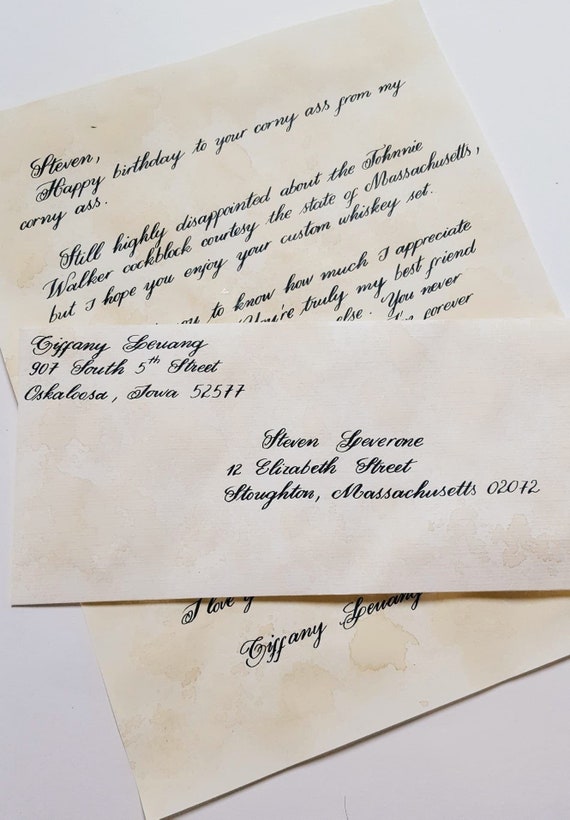 Steven,
Happy birthday to your corny ass from my
corny ass.
Still highly disappointed about the Johnnie
Walker cockblock courtesy the state of Massachusetts,
but I hope you enjoy your custom whiskey set.
you to know how much I appreciate
You're truly my best friend
else. You never
I'm forever
Tiffany Leuang
907 South 5th Street
Oskaloosa, Iowa 52577
Steven Leverone
12 Elizabeth Street
Stoughton, Massachusetts 02072
I love
Tiffany Leuang